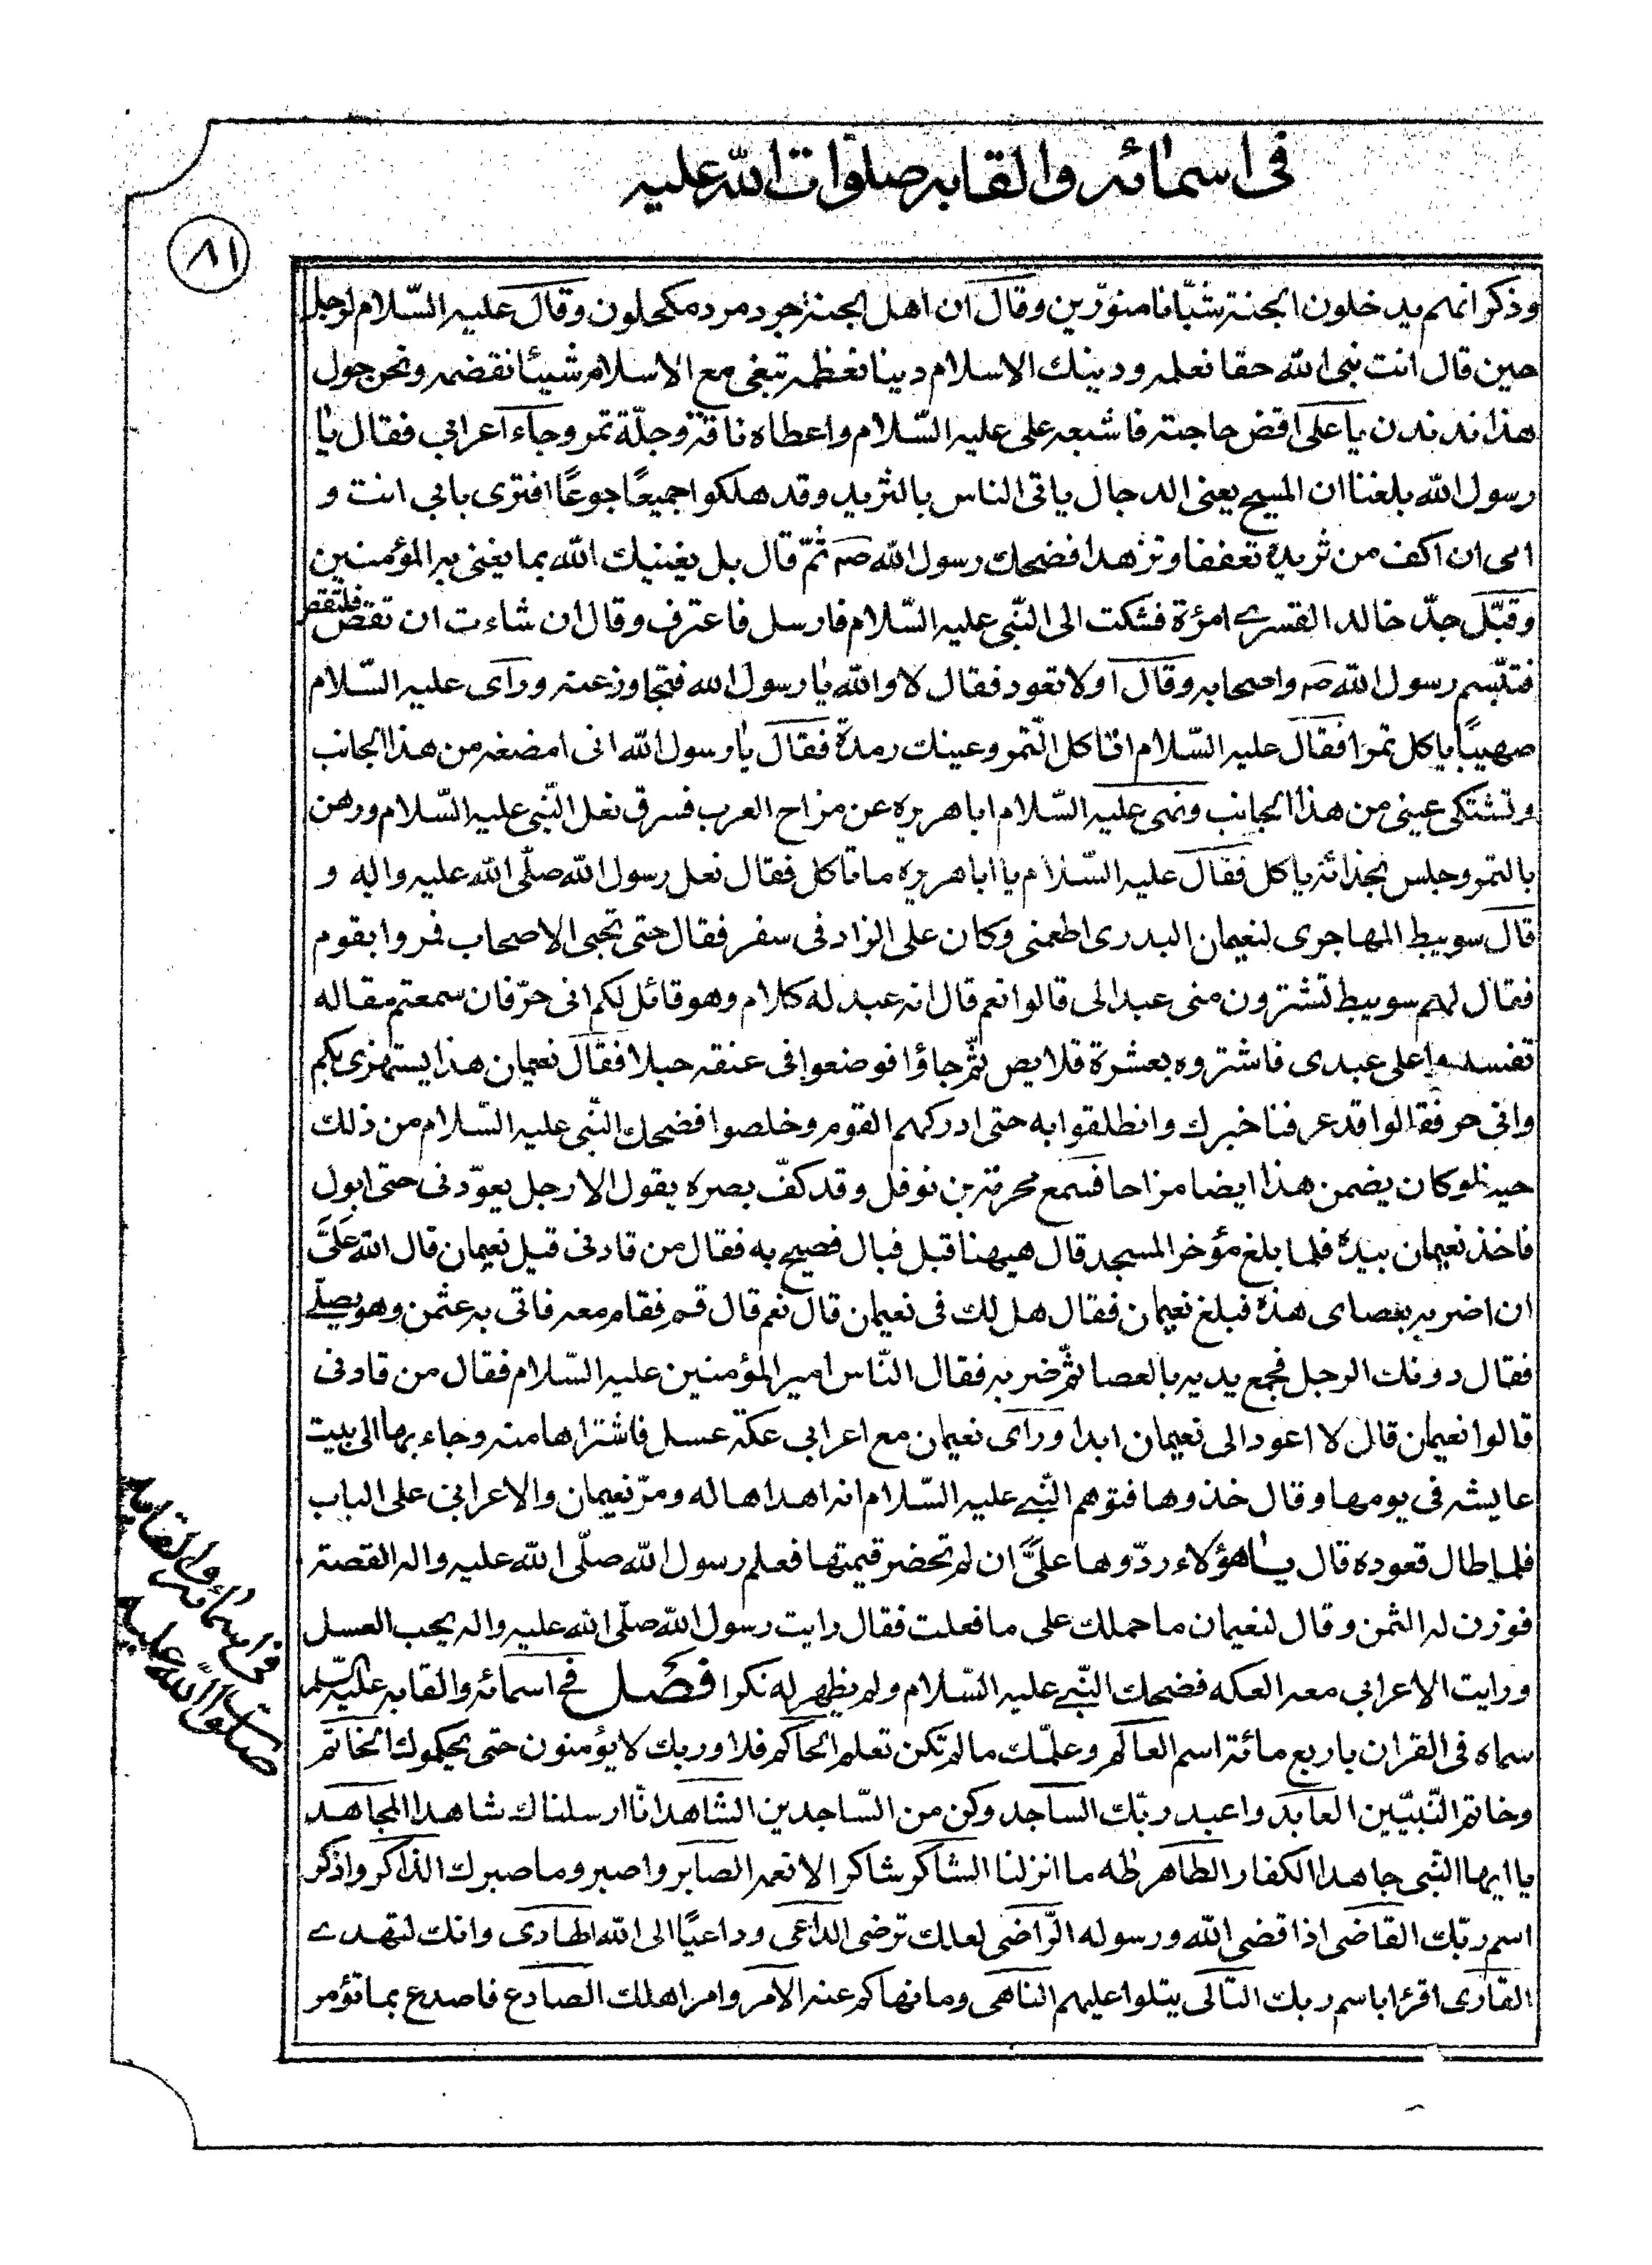 في اسمائه والقابه صلوات الله عليه
٨١
وذكر انهم يدخلون الجنة شبّانا منوّرين وقال ان اهل الجنة جرد مرد مكحلون وقال عليه السّلام لرجل
حين قال انت نبى الله حقا نعلمه ودينك الاسلام دينا نعظمه تبغى مع الاسلام شيئا نقضمه ونحن حول
هذا ندندن يا على اقض حاجته فاشبعه على عليه السّلام واعطاه ناقة وجلّة تمر وجاء اعرابي فقال يا
رسول الله بلغنا ان المسيح يعنى الدجال ياتى الناس بالثريد وقد هلكوا جميعًا جوعًا افترى بابي انت و
امى ان اكف من ثريده تعففا وتزهدا فضحك رسول الله صه ثمّ قال بل يغنيك الله بما يغنى به المؤمنين
وقبّل جدّ خالد القسرى امرة فشكت الى النّبى عليه السّلام فارسل فاعترف وقال ان شاءت ان تقتص فلتقتص
فتبّسم رسول الله صه واصحابه وقال اولا تعود فقال لا والله يا رسول الله فتجاوز عنه وراى عليه السّلام
صهيبًا ياكل تمرا فقال عليه السّلام اتاكل التّمر وعينك رمدة فقال يا رسول الله انى امضغه من هذا الجانب
وتشتكى عينى من هذا الجانب ونهى عليه السّلام ابا هريره عن مزاح العرب فسرق نعل النّبى عليه السّلام ورهن
بالتمر وجلس بحذائه ياكل فقال عليه السّلام يا ابا هريره ما تاكل فقال نعل رسول الله صلّى الله عليه واله و
قال سويبط المهاجرى لنعيمان البدرى اطعمنى وكان على الزاد فى سفر فقال حتى تجئ الاصحاب فمروا بقوم
فقال لهم سويبط تشترون منى عبدا لى قالوا نعم قال انه عبد له كلام وهو قائل لكم انى حرّ فان سمعتم مقاله
تفسدوا على عبدى فاشتروه بعشرة قلايص ثمّ جاؤا فوضعوا فى عنقه حبلا فقال نعيمان هذا يستهزى بكم
وانى حر فقالوا قد عرفنا خبرك وانطلقوا به حتى ادركهم القوم وخلصوا فضحك النّبى عليه السّلام من ذلك
حينا وكان يضمن هذا ايضا مزاحا فسمع محرمة بن نوفل وقد كفّ بصره يقول الا رجل يعوّدنى حتى ابول
فاخذ نعيمان بيده فلما بلغ مؤخر المسجد قال هيهنا قبل فبال فصيح به فقال من قادنى قيل نعيمان قال الله علىّ
ان اضربه بعصاى هذه فبلغ نعيمان فقال هل لك فى نعيمان قال نعم قال قم فقام معه فاتى به عثمن وهو يصلّى
فقال دونك الرجل فجمع يديه بالعصا ثمّ ضربه فقال النّاس امير المؤمنين عليه السّلام فقال من قادنى
قالوا نعيمان قال لا اعود الى نعيمان ابدا وراى نعيمان مع اعرابي عكة عسل فاشتراها منه وجاء بها الى بيت
عايشه فى يومها وقال خذوها فتوهم النّبي عليه السّلام انه اهداها له ومرّ نعيمان والاعرابى على الباب
فلما طال قعوده قال يا هؤلاء ردّوها علىّ ان لم تحضر قيمتها فعلم رسول الله صلّى الله عليه واله القصة
فوزن له الثمن وقال لنعيمان ما حملك على ما فعلت فقال رايت رسول الله صلّى الله عليه واله يحب العسل
ورايت الاعرابي معه العكه فضحك النّبي عليه السّلام ولم يظهر له نكرا فصل في اسمائه والقابه عليه السّلم
سماه فى القران باربع مائة اسم العالم وعلمّك ما لم تكن تعلم الحاكم فلا وربك لا يؤمنون حتى يحكموك الخاتم
وخاتم النّبيّين العابد واعبد ربّك الساجد وكن من السّاجدين الشاهد انّا ارسلناك شاهدا المجاهد
يا ايها النّبى جاهد الكفار الطاهر طه ما انزلنا الشاكر شاكرا لانعمه الصابر واصبر وما صبرك الذاكر واذكر
اسم ربّك القاضى اذا قضى الله ورسوله الرّاضى لعلك ترضى الداعى وداعيًا الى الله الهادى وانك لتهدى
القارى اقرا باسم ربك التالى يتلوا عليهم الناهى وما نهاكم عنه الامر وامر اهلك الصادع فاصدع بما تؤمر
في اسمائه والقابه
صلوات الله عليه